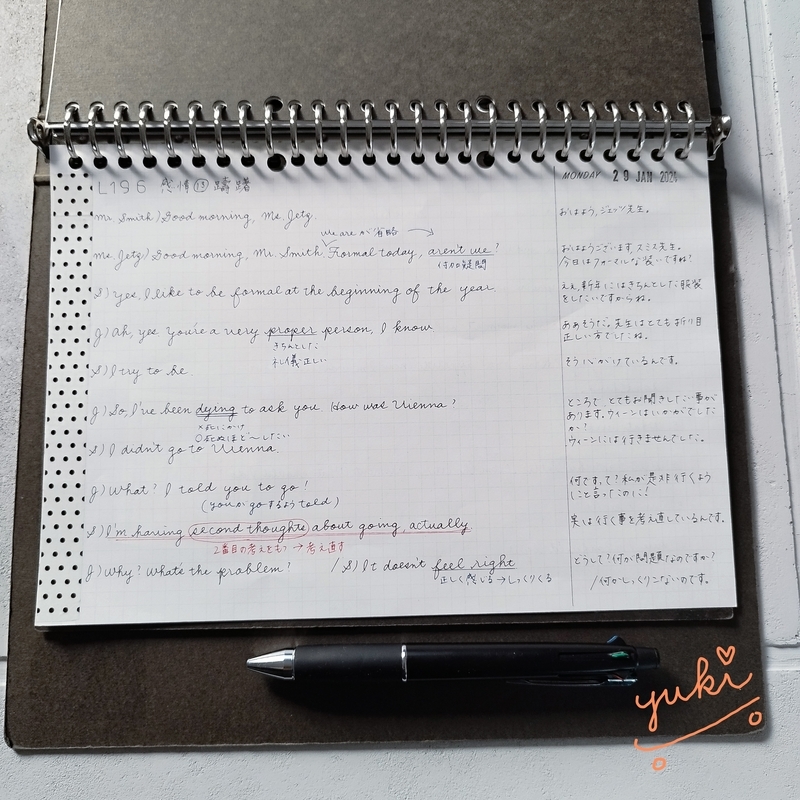 L196 感情⑬ 躊躇
MONDAY 29 JAN 2024
Mr. Smith) Good morning, Ms. Jetz.
おはよう、ジェッツ先生。
we are が省略
Ms. Jetz) Good morning, Mr. Smith. Formal today, aren't we?
付加疑問
おはようございます、スミス先生。
今日はフォーマルな装いですね?
S) Yes, I like to be formal at the beginning of the year.
ええ、新年にはきちんとした服装
をしたいですからね。
J) Ah, yes you're a very proper person, I know
きちんとした
礼儀正しい
ああそうだ。先生はとても折り目
正しい方でしたね。
S) I try to be.
そう心がけているんです。
J) So, I've been dying to ask you How was Vienna?
×死にかけ
○死ぬほど〜したい
ところで、とてもお聞きしたい事が
あります。ウィーンはいかがでした
か?
S) I didn't go to Vienna.
ウィーンには行きませんでした。
J) What? I told you to go!
(youがgoするようtold)
何ですって?私が是非行くよう
にと言ったのに!
S) I'm having second thoughts about going, actually
2番目の考えをもつ→考え直す
実は行く事を考え直しているんです。
J) Why? What's the problem? / S) It doesn't feel right
正しく感じる→しっくりくる
どうして?何か問題なのですか?
/何かしっくりこないのです。
yuki